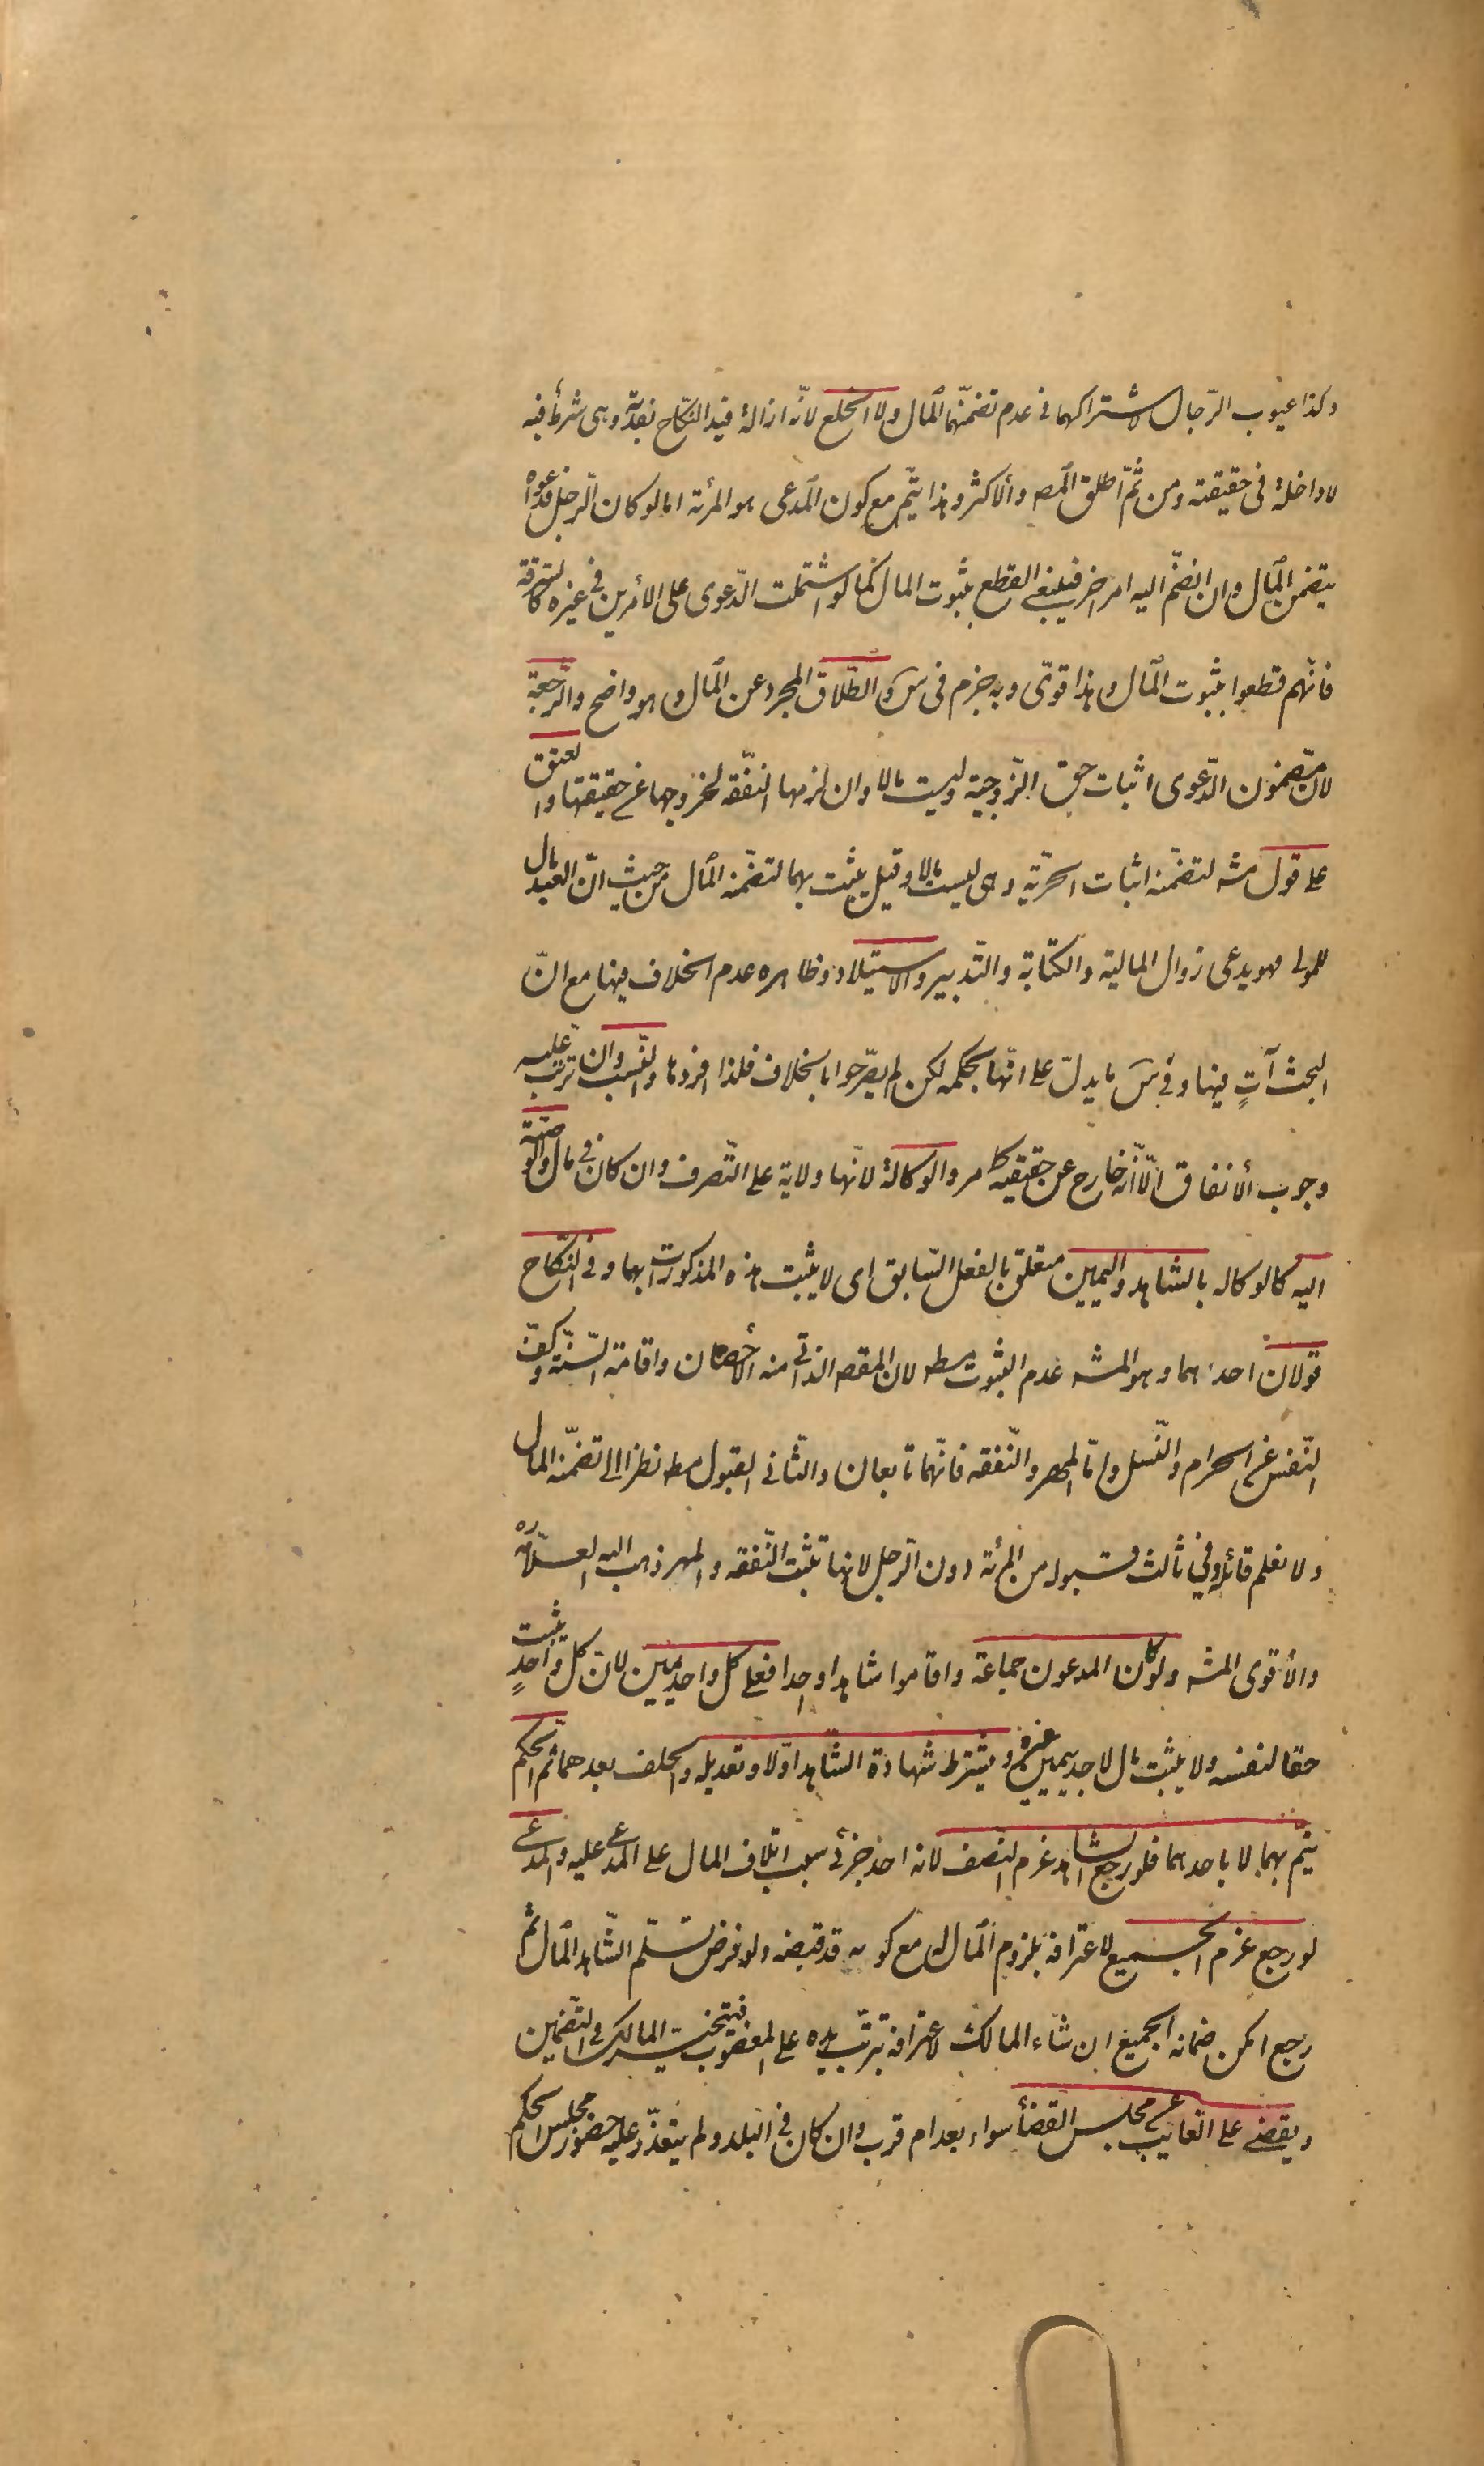 وكذا عيوب الرّجال لاشتراكهما في عدم تضمنّهما المال ولا الخلع لانّه ازالة قيد النكاح بفدية وهى شرط فيه
لا داخلة في حقيقته ومن ثمّ اطلق المصـ والأكثر وهذا يتّم مع كون المدعى هو المرئة اما لو كان الرّجل فدعواه
يتضمن المال وان انضمّ اليه امر اخر فينبغي القطع بثبوت المال كما لو اشتملت الدّعوى على الأمرين في غيره كالسّرقة
فانّهم قطعوا بثبوت المال وهذا قوىّ وبه جزم في س والطّلاق المجرد عن المال وهو واضح والرّجعة
لانّ مضمون الدّعوى اثبات حق الزّوجية وليست مالا وان لزمها النّفقه لخروجها عن حقيقتها والعتق
على قول مشه لتضمّنه اثبات الحرّية وهى ليست مالا وقيل يثبت بهما لتضمّنه المال من حيث انّ العبد مال
للمولى فهو يدعى زوال المالية والكتابة والتّدبير والاستيلاد وظاهره عدم الخلاف فيها مع انّ
البحث آتٍ فيها وفي س ما يدلّ على انّها بحكمه لكن لم يصّرحوا بالخلاف فلذا افردها والنّسب وان ترتّب عليه
وجوب الأنفاق الّا انّه خارج عن حقيقيه كما مر والوكالة لانّها ولاية على التّصرف وان كان في مال والوصيّة
اليه كالوكاله بالشاهد واليمين متعلق بالفعل السّابق اى لا يثبت هذه المذكورات بهما وفي النّكاح
قولان احدهما وهو المشه عدم الثبوت مط لان المقصـ الذاتي منه الأحصان واقامة السّنّة وكفّ
النّفس عن الحرام والنّسل وامّا المهر والنّفقه فانّهما تابعان والثّاني القبول مط نظرا الى تضمّنه المال
ولا نعلم قائله وفي ثالث قبوله من المرئة دون الرّجل لانها تثبت النّفقه والمهر ذهب اليه العلّامه ره
والأقوى المشه ولو كان المدعون جماعة واقاموا شاهدا واحدا فعلى كل واحد يمين لانّ كل واحدٍ يثبت
حقا لنفسه ولا يثبت مال لاحد بيمين غيره ويشترط شهادة الشّاهد اوّلا وتعديله والحلف بعدهما ثم الحكم
يتم بهما لا باحدهما فلو رجع الشاهد غرم النّصف لانه احد جزئى سبب اتلاف المال على المدعى عليه والمدّعى
لو رجع غرم الجميع لاعترافه بلزوم المال له مع كونه قد قبضه ولو فرض تسلّم الشّاهد المال ثم
رجع امكن ضمانه الجميع ان شاء المالك لاعترافه بترتّب يده على المغصوب فيتخير المالك في التّضمين
ويقضى على الغايب عن مجلس القضأ سواء بعد ام قرب وان كان في البلد ولم يتعذّر عليه حضور مجلس الحكم